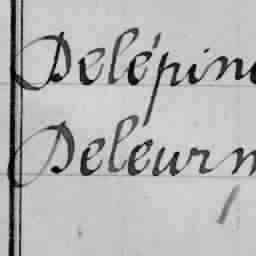 Delépine
Deleurm